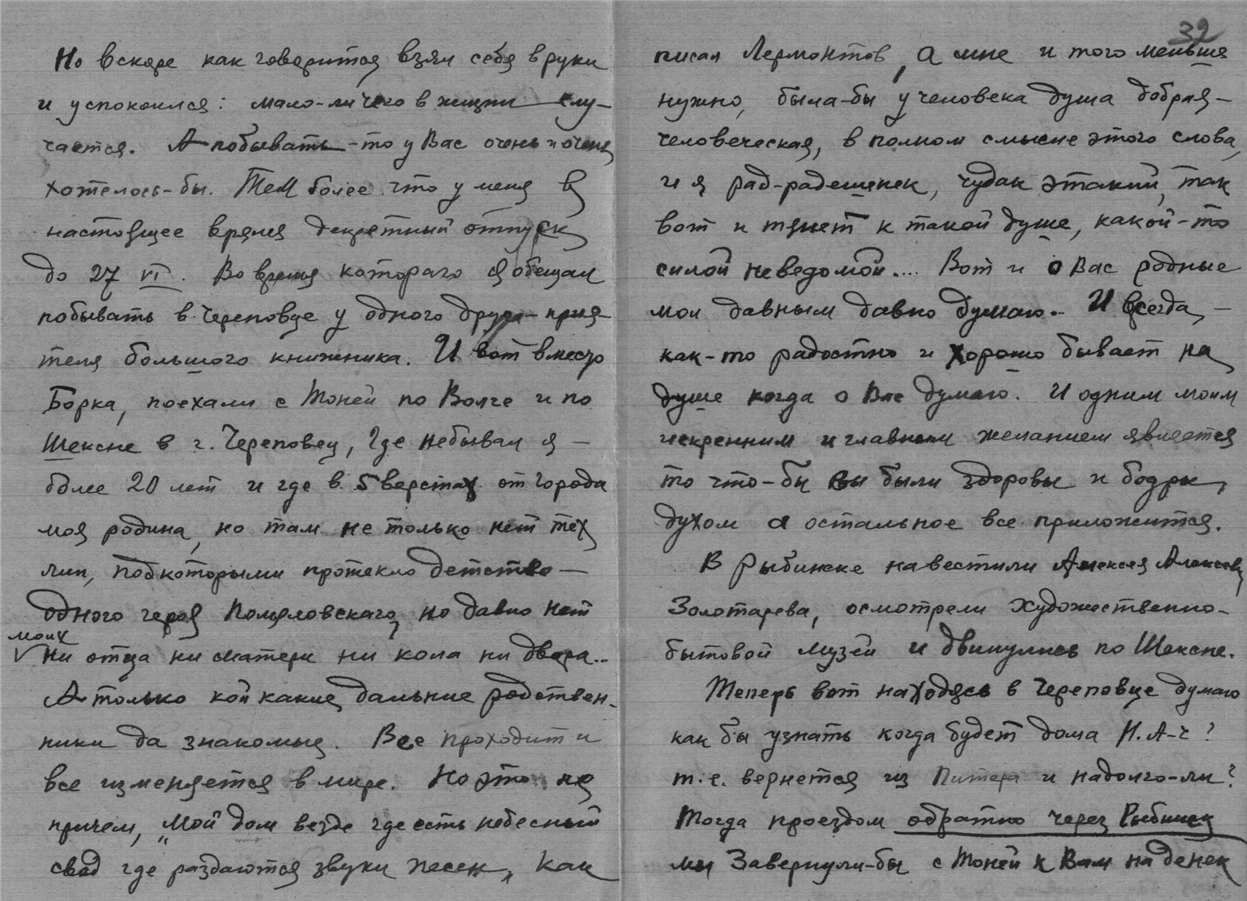 Но вскоре как говорится взял себя в руки
и успокоился: мало-ли чего в жизни слу-
чается. А побывать-то у Вас очень и очень
хотелось-бы. Тем более что у меня в
настоящее время декретный отпуск
до 27 VI. Во время котораго я обещал
побывать в Череповце у одного друга-прия-
теля большого книжника. И вот вместо
Борка, поехали с Тоней по Волге и по
Шексне в г. Череповец, где небывал я —
более 20 лет и где в 5 верстах от города
моя родина, но там не только нет тех
лип, под которыми протекло детство —
одного героя Помяловскаго, но давно нет
моих
ни отца ни матери ни кола ни двора...
А только кой какие дальние родствен-
ники да знакомые. Все проходит и
все изменяется в мире. Но это не
причем, „Мой дом везде где есть небесный
свод где раздаются звуки песен„ как
32
писал Лермонтов, а мне и того меньше
нужно, была-бы у человека душа добрая —
человеческая, в полном смысле этого слова,
и я рад-радешенек, чудак этакий, так
вот и тянет к такой душе, какой-то
силой неведомой.... Вот и о Вас родные
мои давным давно думаю.. И всегда, —
как-то радостно и хорошо бывает на
душе когда о Вас думаю. И одним моим
искренним и главным желанием является
то что-бы вы были здоровы и бодры,
духом а остальное все приложится.
В Рыбинске навестили Алексея Алексеев.
Золотарева, осмотрели художественно-
бытовой музей и двинулись по Шексне.
Теперь вот находясь в Череповце думаю
как бы узнать когда будет дома Н. А-ч?
т.е. вернется из Питера и надолго-ли?
Тогда проездом обратно через Рыбинск
мы завернули-бы с Тоней к Вам на денек